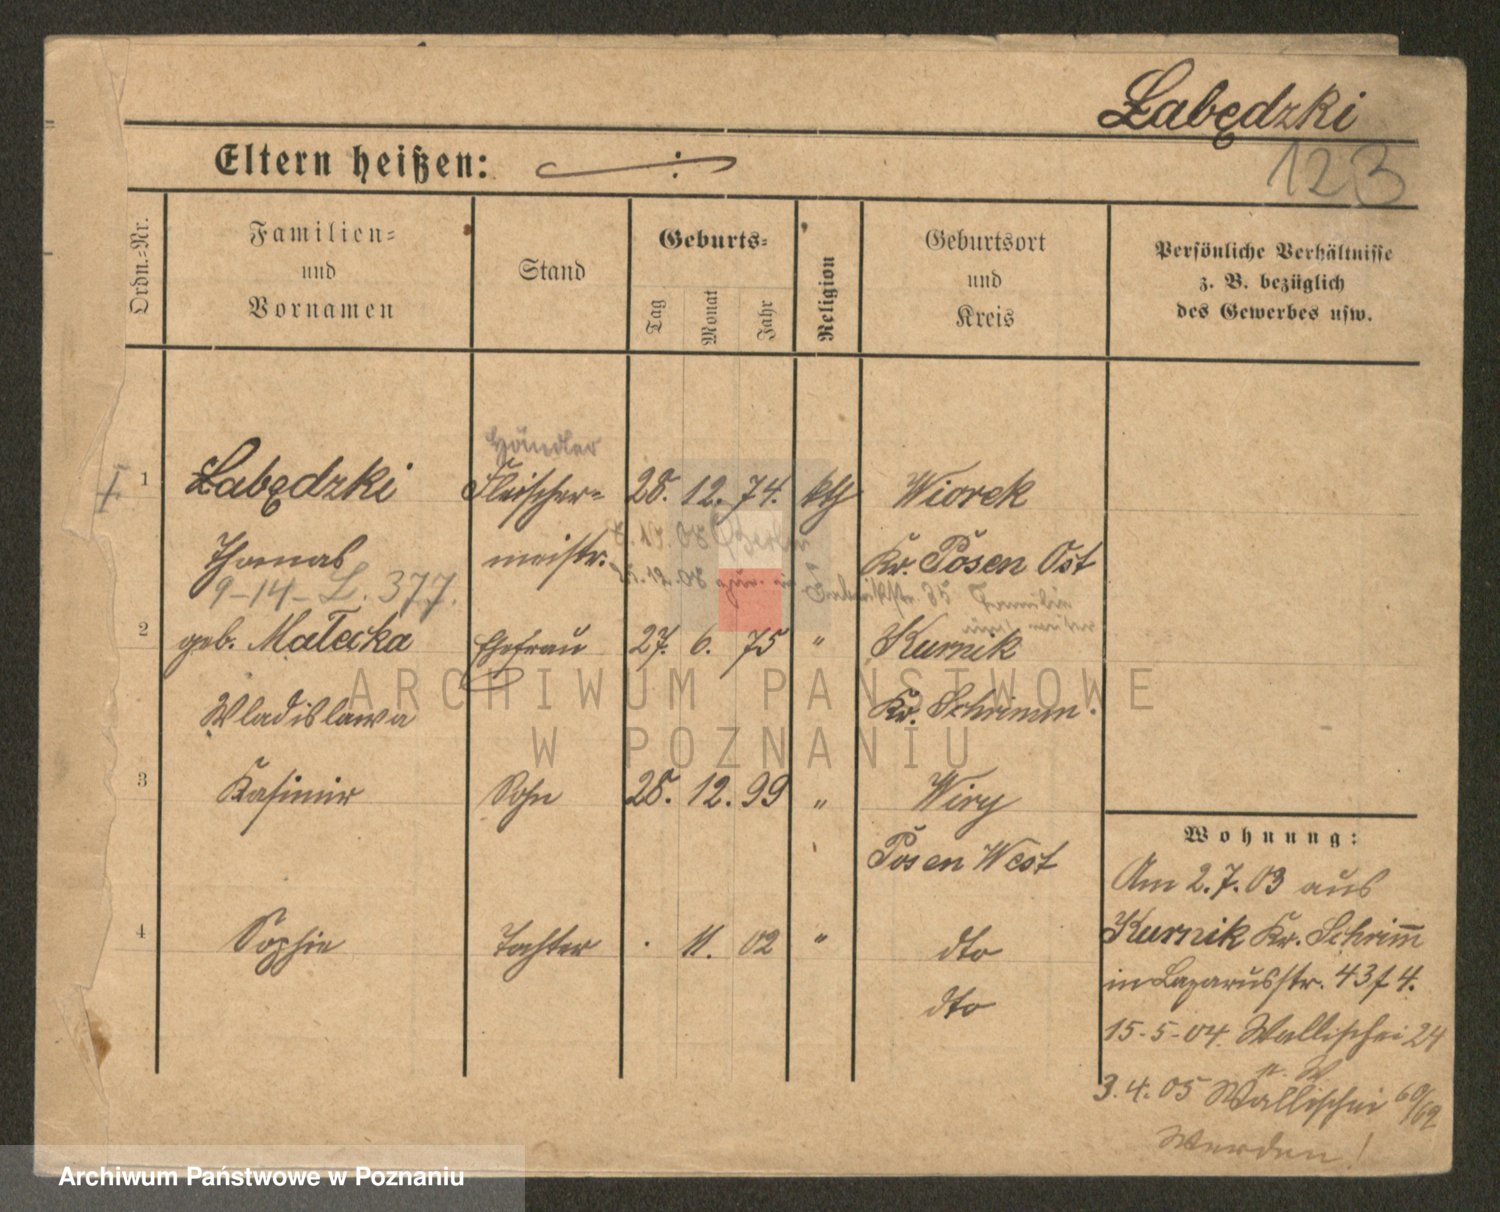 Łabędzki
123
Eltern heißen: ./.
Ordn.-Nr.
Familien-
und
Vornamen
Stand
Geburts-
Tag
Monat
Jahr
Religion
Geburtsort
und
Kreis
Persönliche Verhältnisse
z. B. bezüglich
des Gewerbes usw.
Händler
1 Łabędzki Fleischer- 28. 12. 74. kth Wiorek
Thomas meistr. Kr. Posen Ost
17. 08 Berlin
9-14-L. 377.
12. 08 zur. in 35 Familie
2 geb. Małecka Ehefrau 27. 6. 75 " Kurnik
Wladislawa Kr. Schrimm.
3 Kasimir Sohn 28. 12. 99 " Wiry
Posen West
4 Sophie Tochter . 11. 02 " dto
dto
Wohnung:
Am 2.7.03 aus
Kurnik Kr. Schrimm
in Lazarusstr. 43 f 4.
15-5-04. Wallischei 24
3.4.05 Wallischei 60/62
Werden!
ARCHIWUM PAŃSTWOWE
W POZNANIU
Archiwum Państwowe w Poznaniu